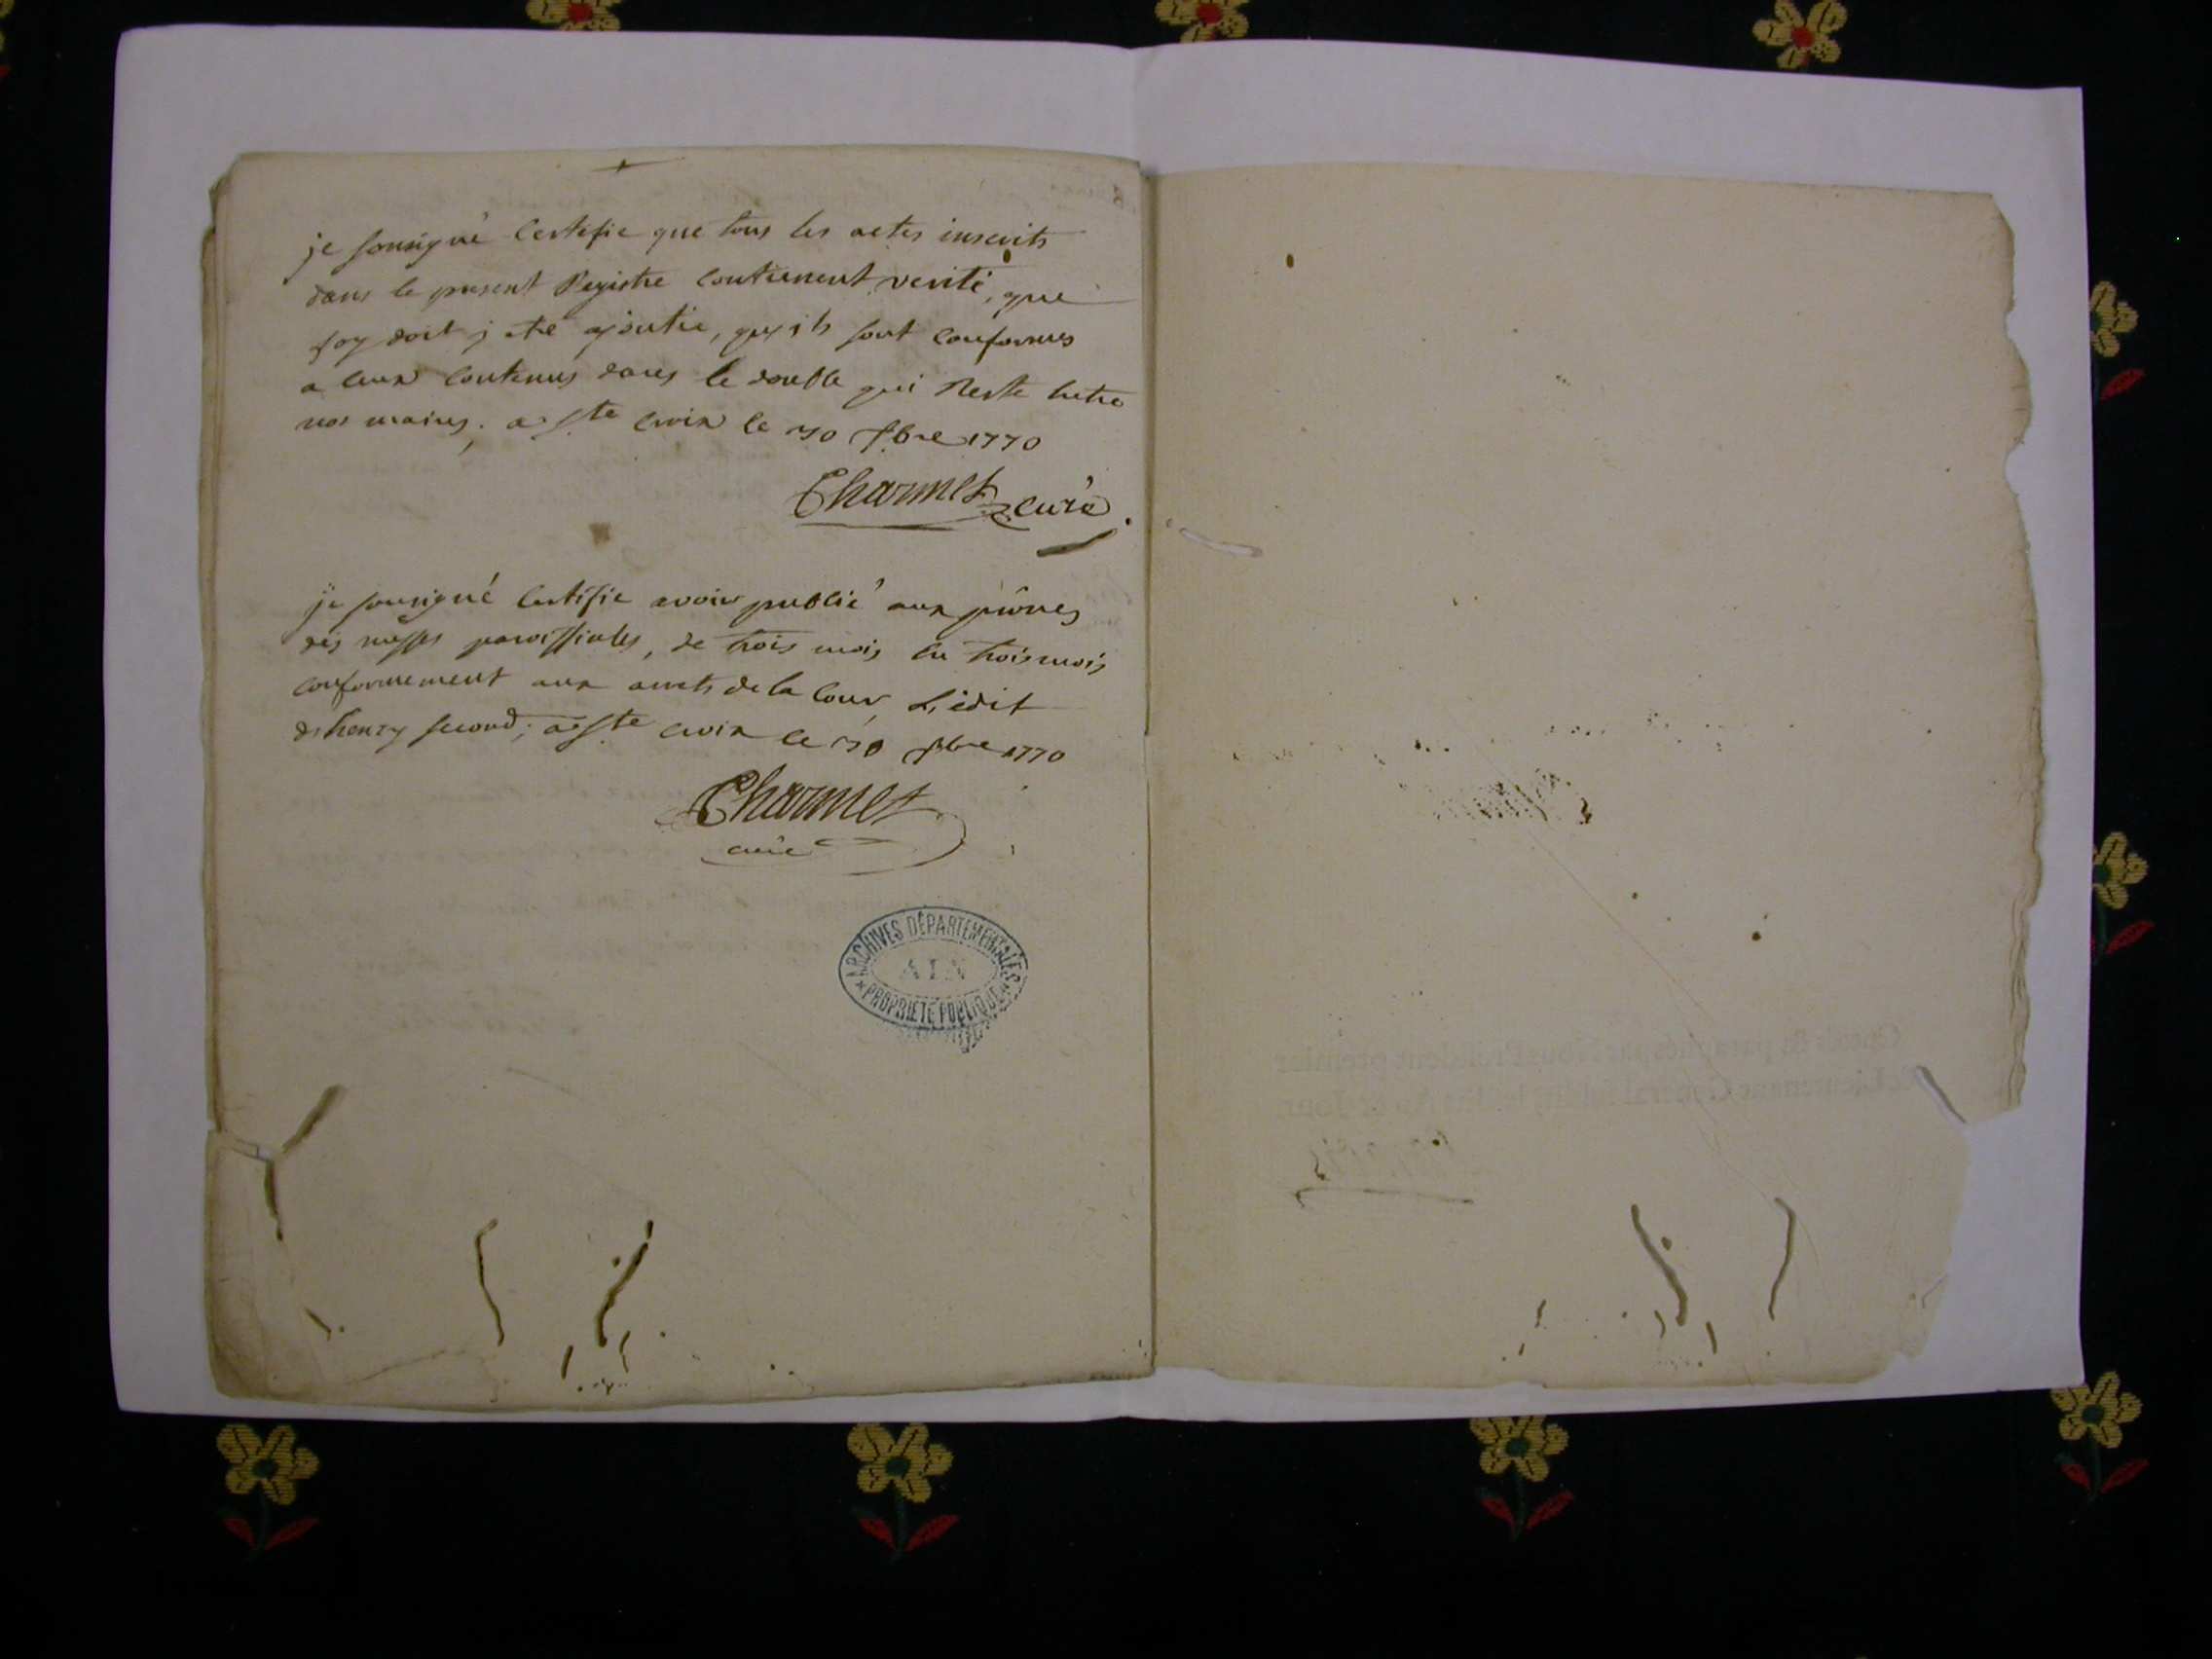 je sousigné Certifie que tous les actes inscrits
dans le present Registre Contiennent verité, que
foy doit j etre ajoutée, qu'ils sont conformes
a ceux Contenus dans le double qui Reste entre
nos mains; a Ste Croix le 30 1770
Charmet curé
je sousigné Certifie avoir publié aux prônes
des messes paroissiales, de trois mois en trois mois
conformement aux arrets de la Cour L'édit
de henry second; a Ste croix le 30 1770
Charmet
curé
ARCHIVES DÉPARTEMENTALES
AIN
PROPRIÉTÉ PUBLIQUE
Cottés & paraphés par Nous Président premier
& Lieutenant Général susdit, lesdits An & Jour.